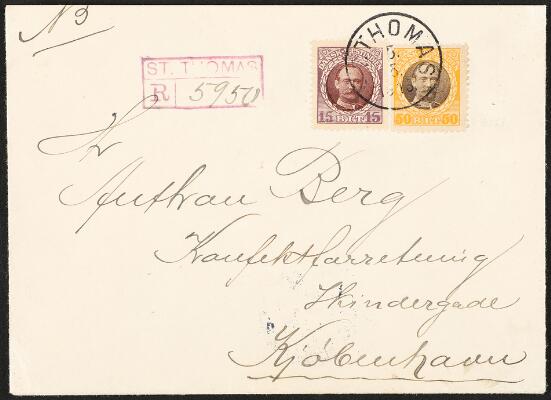 N3
ST. THOMAS
R 5950
THOMAS
15 BIT 15
50 BIT 50
Hr
Anthran Berg
Konfektforretning
Skindergade
Kjøbenhavn